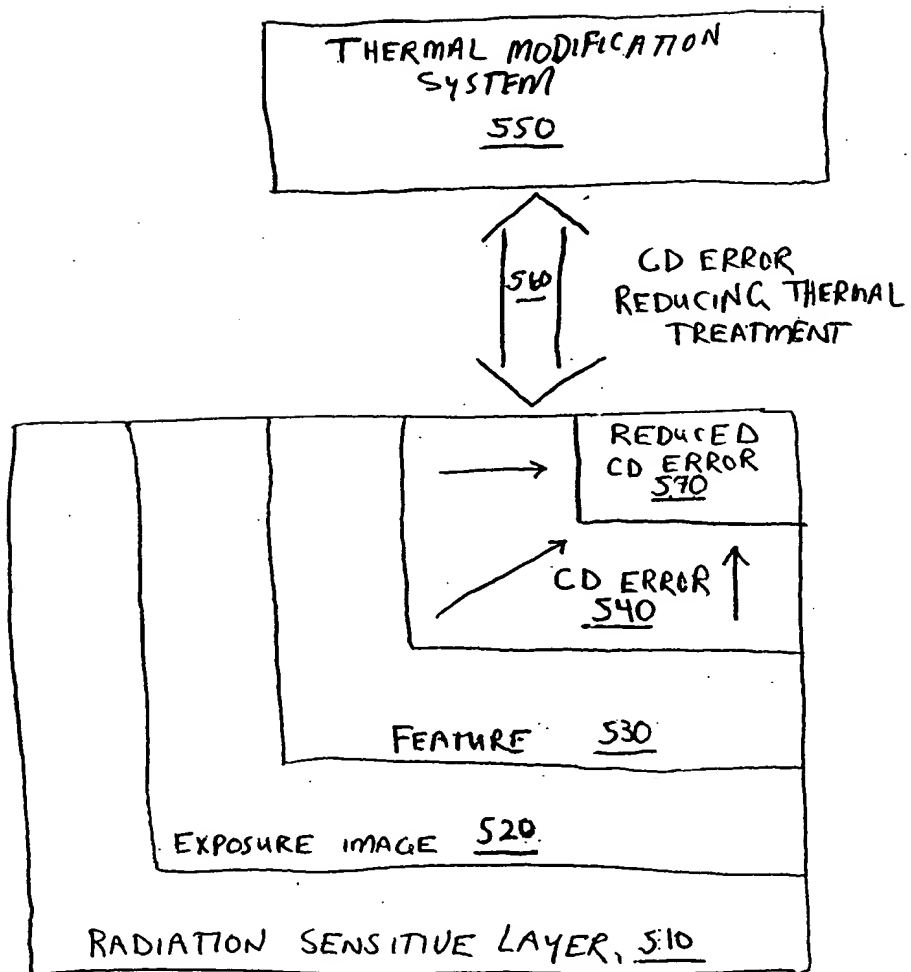 THERMAL MODIFICATION
SYSTEM
550
560
CD ERROR
REDUCING THERMAL
TREATMENT
REDUCED
CD ERROR
570
CD ERROR
540
FEATURE 530
EXPOSURE IMAGE 520
RADIATION SENSITIVE LAYER, 510